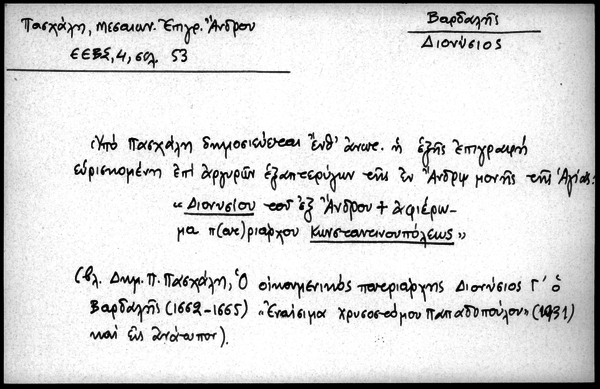 Πασχάλη, Μεσαιων. Ἐπιγρ. Ἄνδρου
ΕΕΒΣ, 4, σελ. 53
Βαρδαλῆς
Διονύσιος
Ὑπὸ Πασχάλη δημοσιεύεται ἔνθ' ἀνωτ. ἡ ἑξῆς ἐπιγραφὴ
εὑρισκομένη ἐπὶ ἀργυρῶν ἑξαπτερύγων τῆς ἐν Ἄνδρῳ μονῆς τῆς Ἁγίας:
"Διονυσίου τοῦ ἐξ Ἄνδρου + ἀφιέρω-
μα π(ατ)ριάρχου Κωνσταντινουπόλεως"
(βλ. Δημ. Π. Πασχάλη, Ὁ οἰκουμενικὸς πατριάρχης Διονύσιος Γ΄ ὁ
Βαρδαλῆς (1662-1665) "Ἐναίσιμα Χρυσοστόμου Παπαδοπούλου" (1931)
καὶ εἰς ἀνάτυπον).